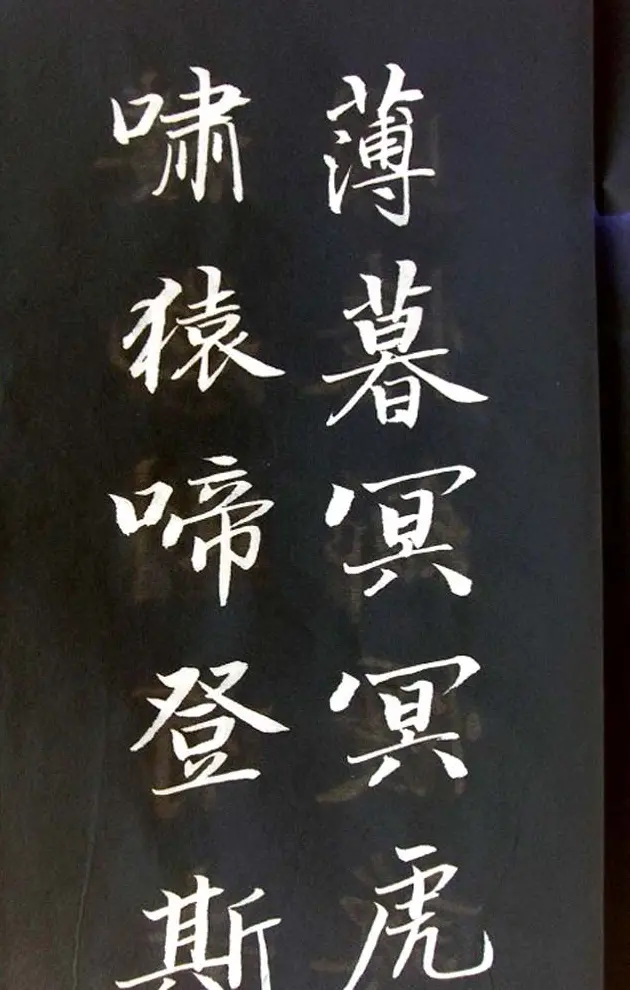 薄暮冥冥虎
嘯猿啼登斯